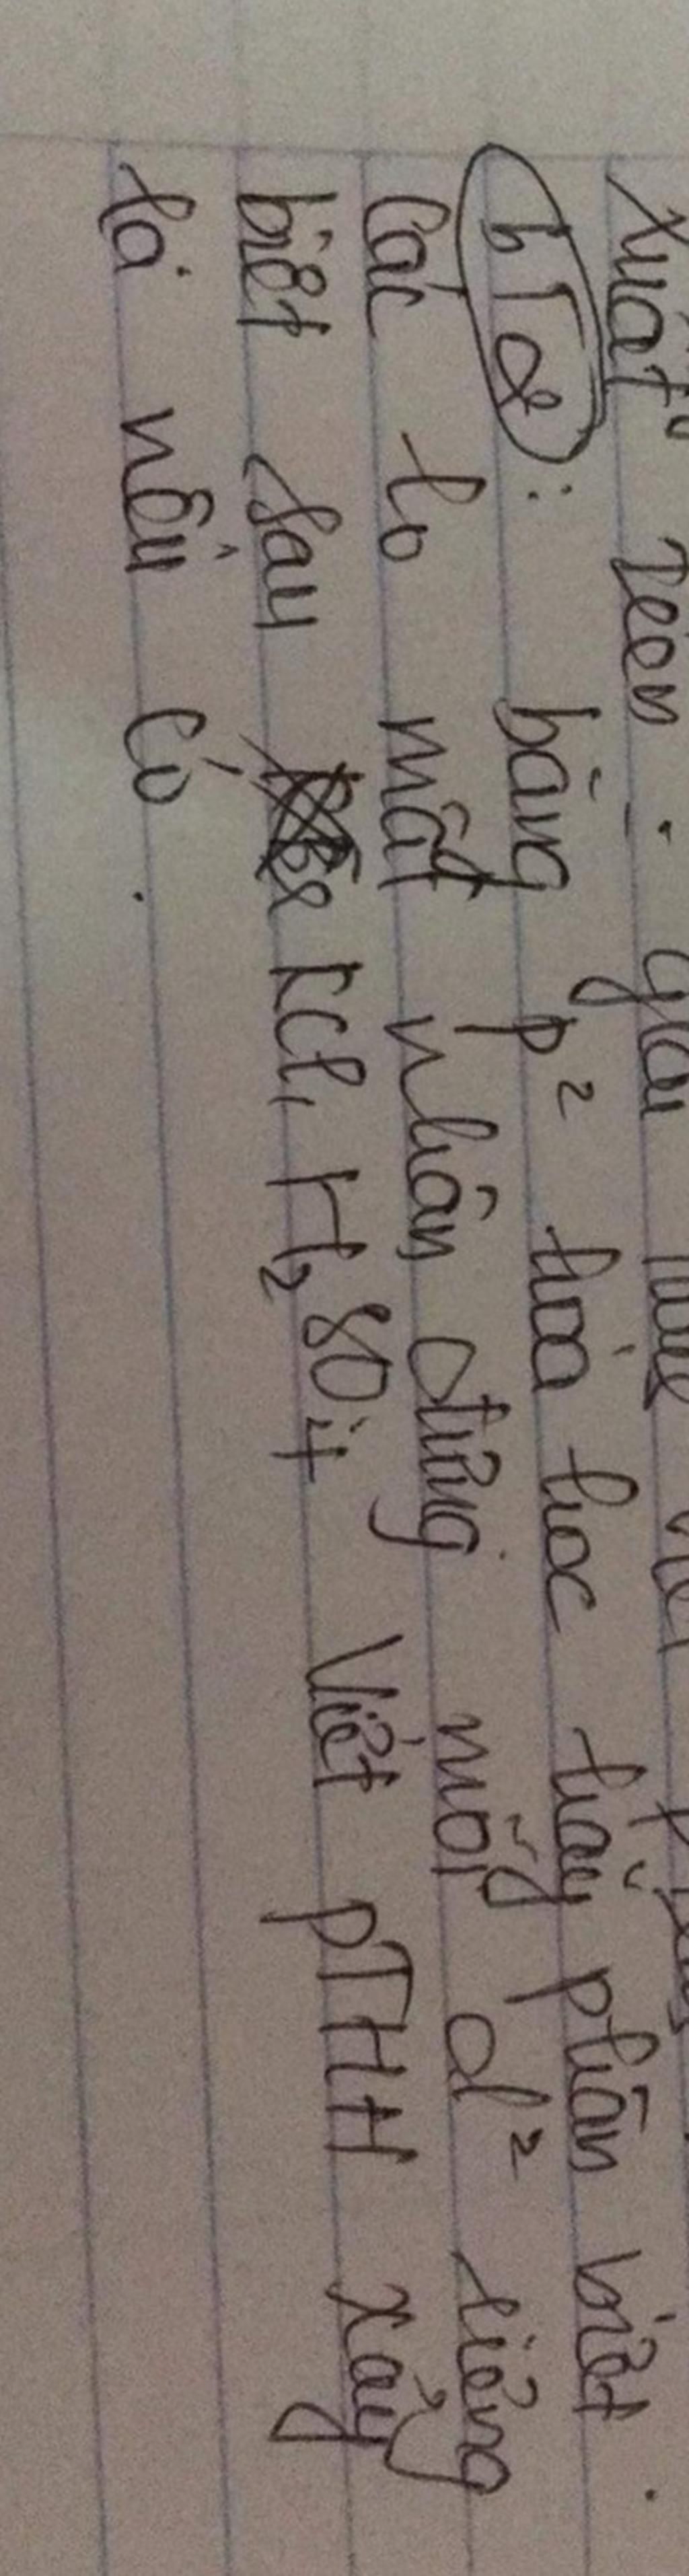 xuất
bT2: bằng p² hóa học hãy phân biệt
Các lo mất nhãn đừng mỗi d² riêng
biệt sau KCl, H₂SO₄ Viết PTHH xảy
ra nếu có.